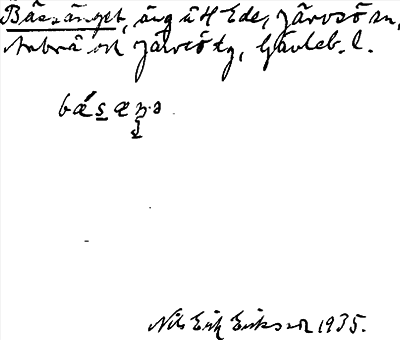 Bäsänget, äng å H Ede, Järvsö sn,
Arbrå och Järvsö tg, Gävleb. l.
bǽsæṇə
Nils Erik Eriksson 1935.